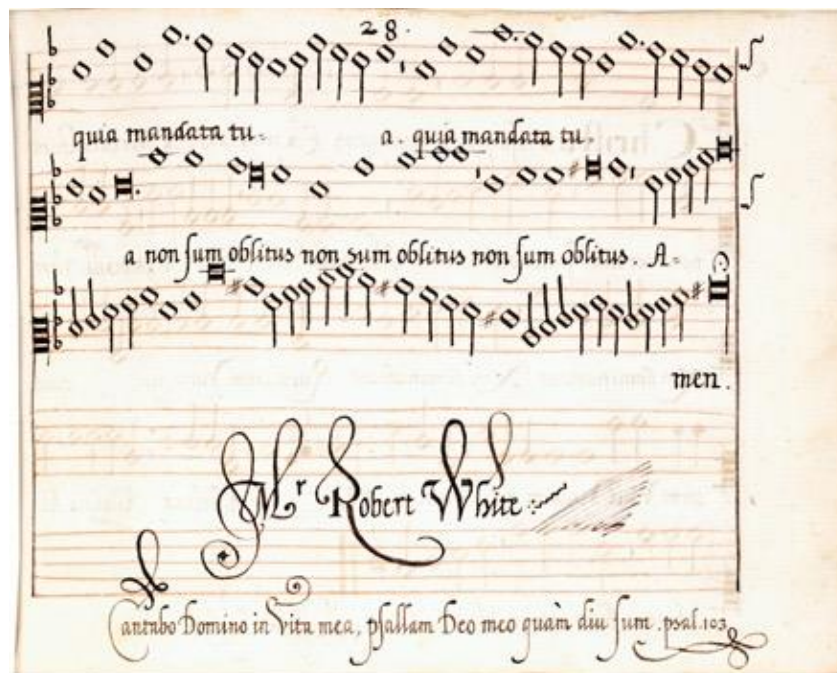 28.
quia mandata tu= a. quia mandata tu=
a non sum oblitus non sum oblitus non sum oblitus. A=
men.
Mr Robert White
Cantabo Domino in Vita mea, psallam Deo meo quàm diu sum. psal. 103